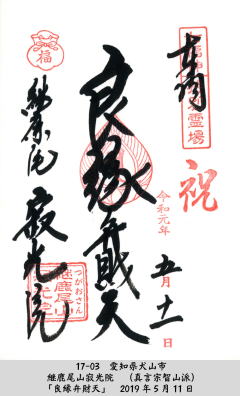 奉拝
霊場
祝
令和元年
五月十一日
良縁弁財天
福
継鹿尾
寂光院
つがおさん
継鹿尾山
寂光院
17-03 愛知県犬山市
継鹿尾山寂光院 (真言宗智山派)
「良縁弁財天」 2019年5月11日